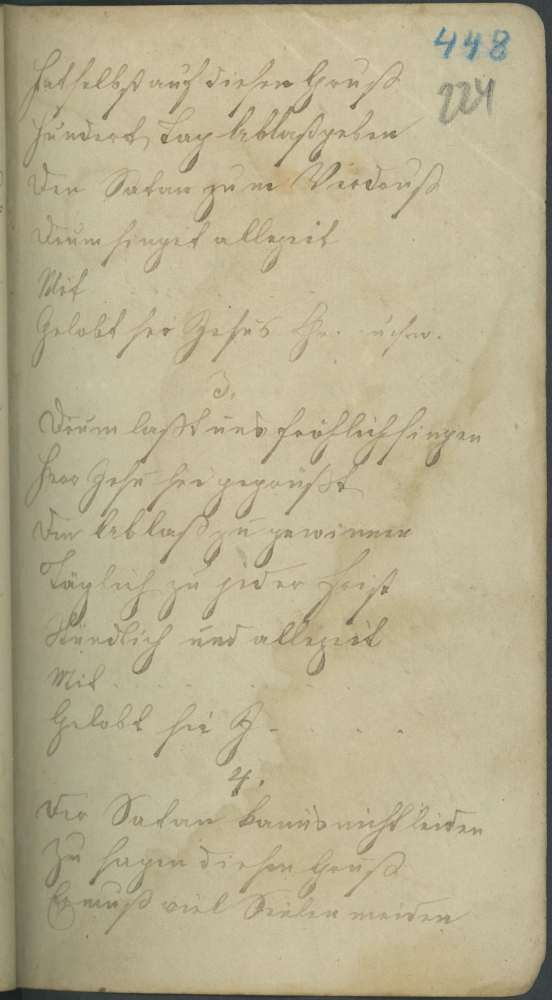 448
224
Hat selbst auf diesen Gruß
Hundert Tag Ablaß geben
Den Satan zu m Verdruß
Drum singet allezeit
Mit
Gelobt sei Jesus Chr. u.s.w.
3.
Drum laßt uns fröhlich singen
Herr Jesu sei gegrüßt
Den Ablaß zu gewinnen
Täglich zu jeder Frist
Stündlich und allezeit
Mit . . . .
Gelobt sei J - . . . .
4.
Der Satan kanns nicht leiden
Zu sagen diesen Gruß
Er muß viel Seelen meiden